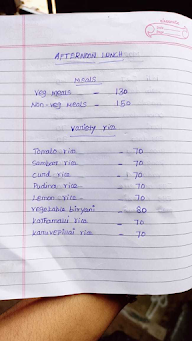 AFTERNOON LUNCH
MEALS
Veg meals - 130
Non-veg meals - 150
Variety rice
Tomato rice - 70
Sambar rice - 70
Curd rice - 70
Pudina rice - 70
Lemon rice - 70
vegetable biryani - 80
kothamalli rice - 70
karuveppilai rice - 70